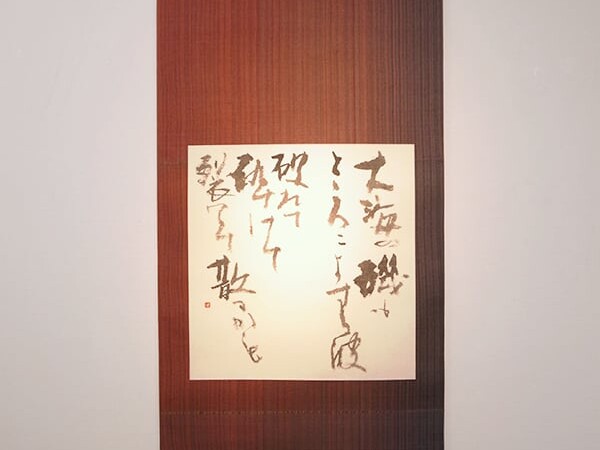 大海の磯も
とゝろによする波
破れて
砕けて
裂けて散るかも